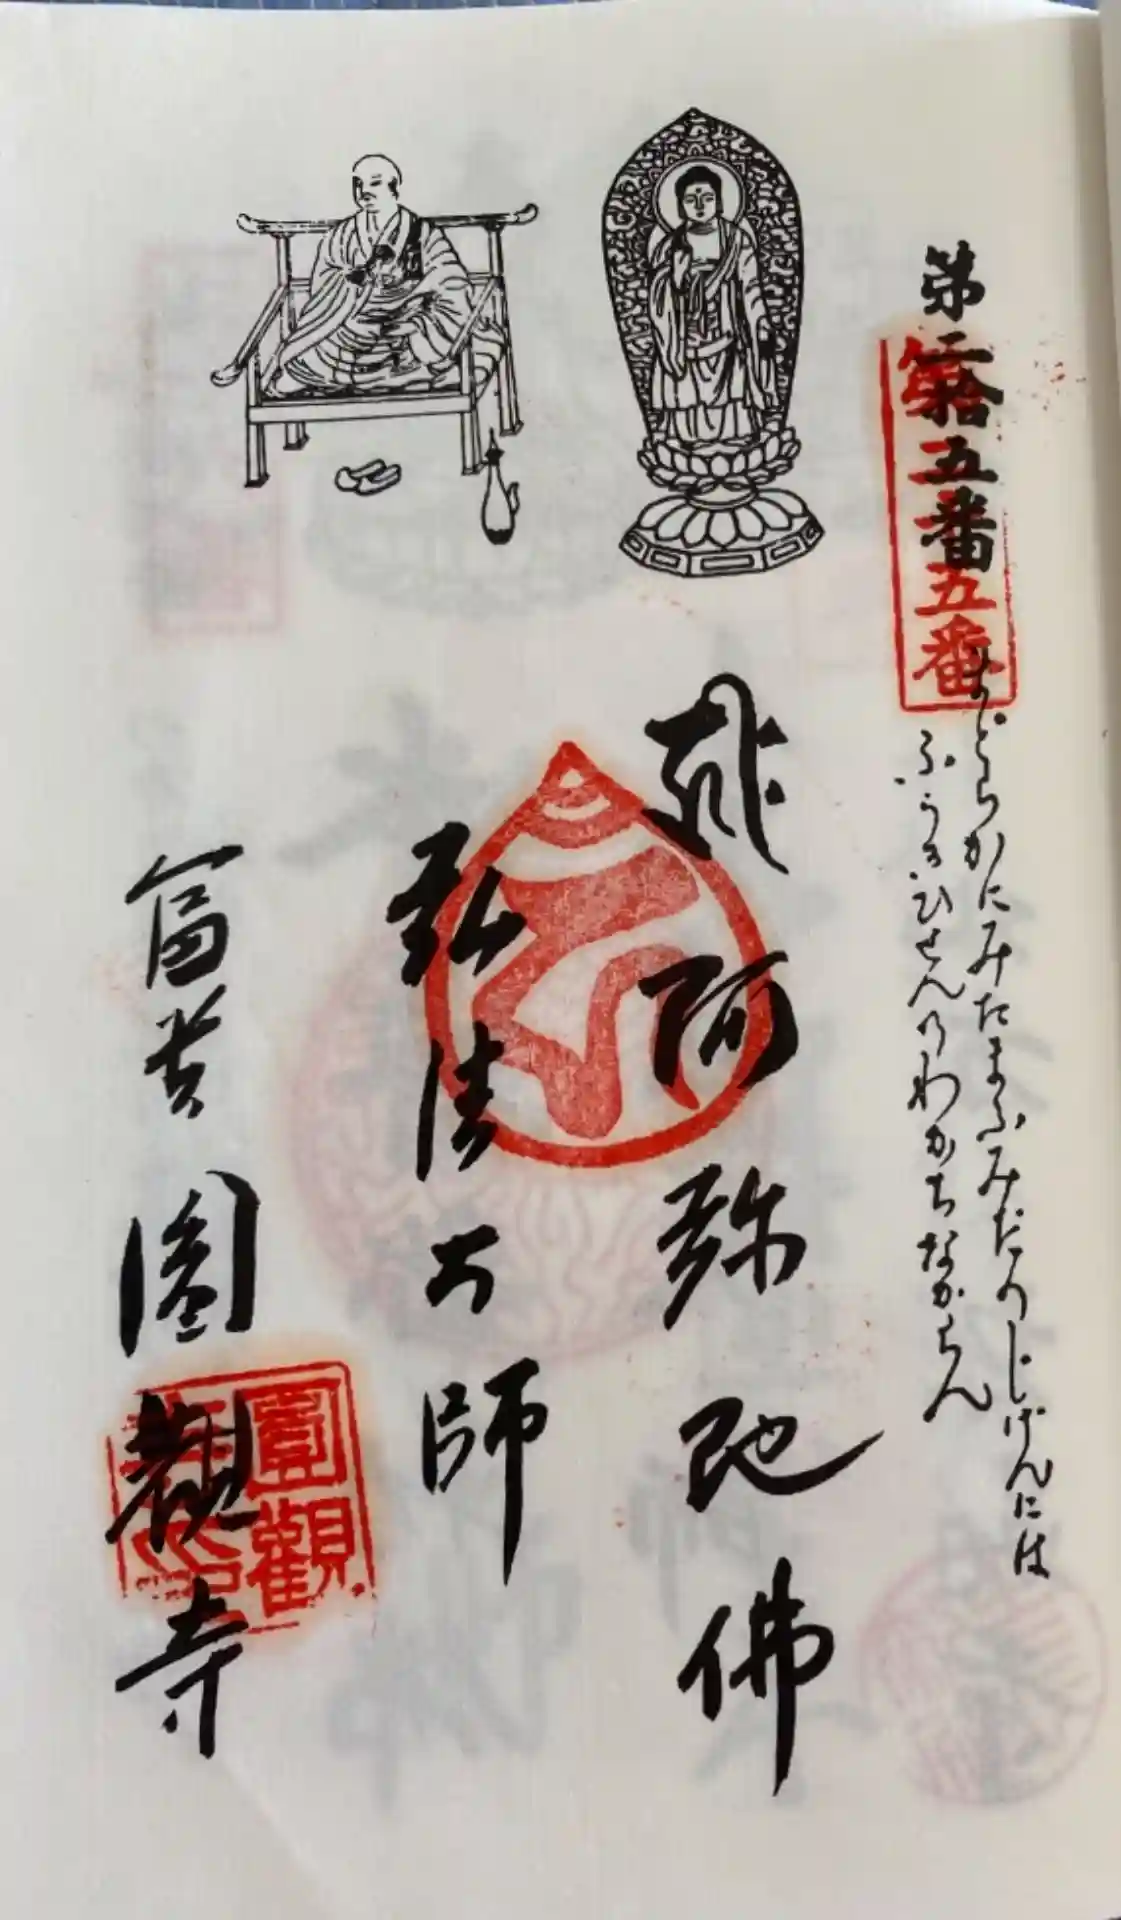 第二拾五番
五番
まどらかにみたまふみだのじげんには
ふうきひせんのわかちなからん
阿弥陀佛
弘法大師
富貴 圓観寺
圓觀